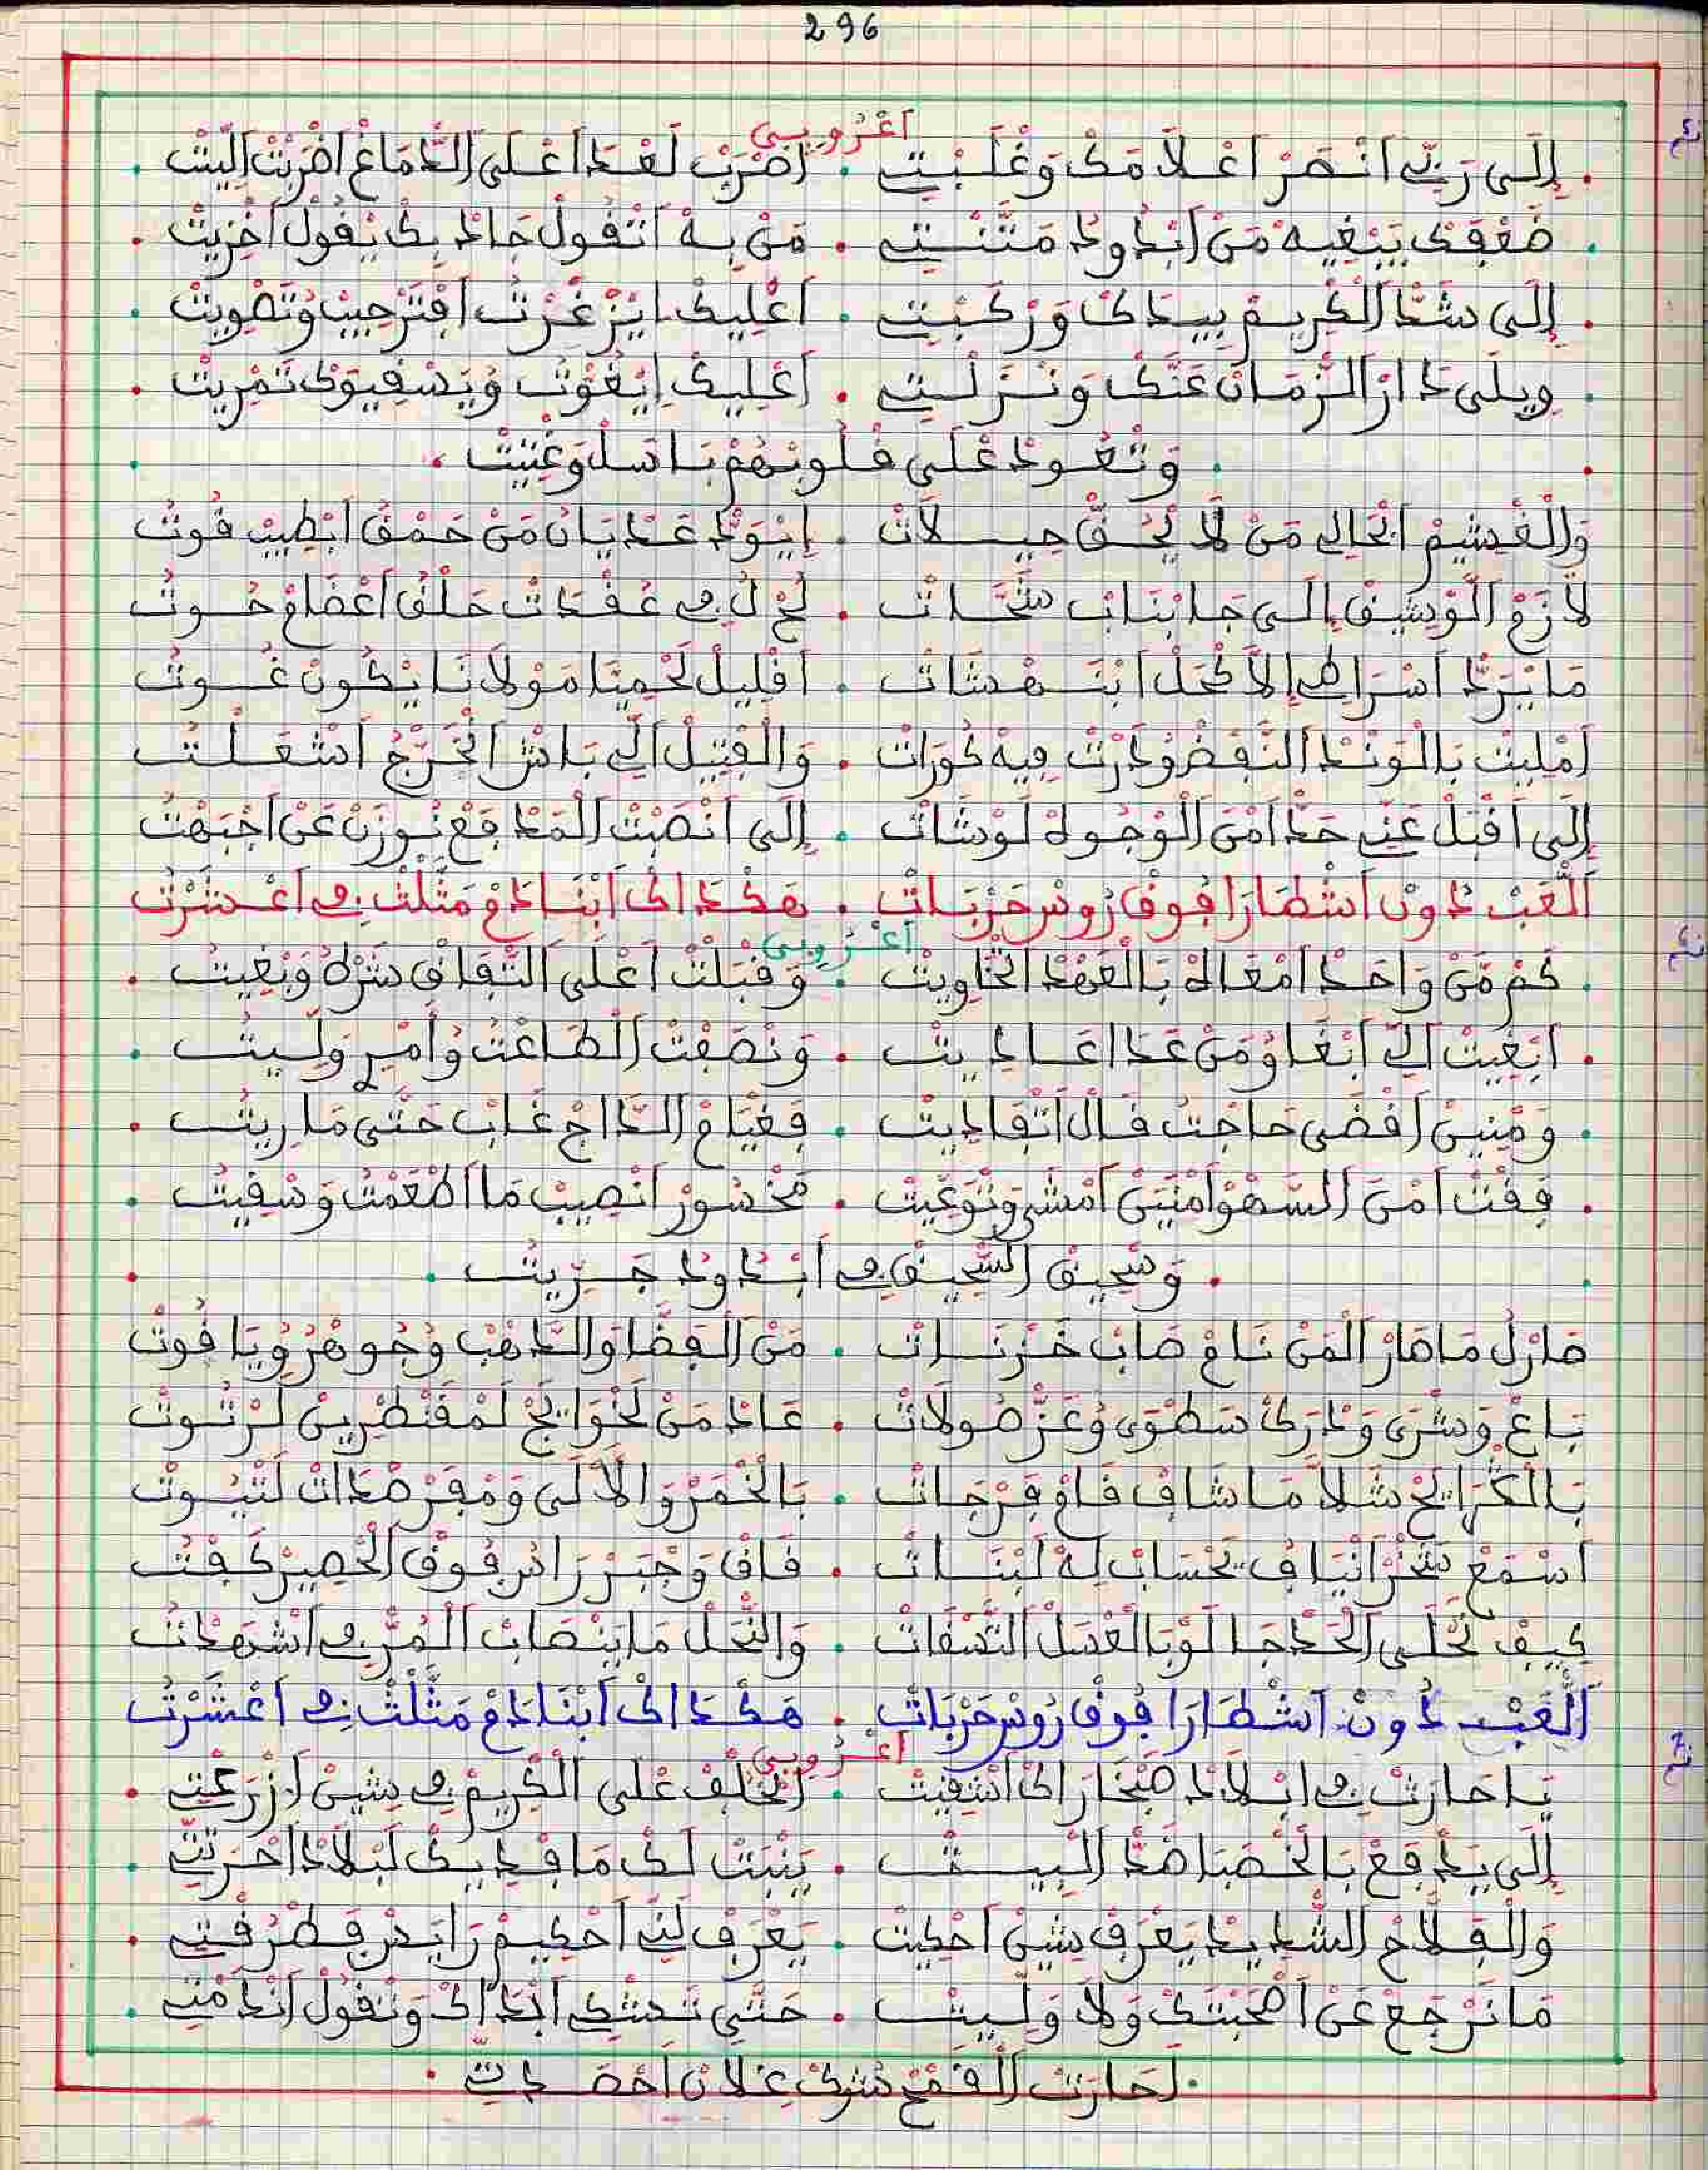 296
اعْرُوبي
إلَى رَبِّي انْصَرْ اعْلَامَكْ وَغْلَبْتِ . اضْرَبْ لَعْدَا اعْلَى الدّْمَاغْ اضْرَبْتْ الْبِيتْ
ضَعْفَكْ يَبْغِيهْ مَنْ ابْدُودْ مَتَّنْتِ . مَنْ بِهْ اتْقُولْ جَادْ بِكْ يْقُولْ اخْزِيتْ
إلَى شَدّْ الكْرِيمْ بِيدَاكْ وَرْكَبْتِ . اعْلِيكْ ايْزَغْرْتُ افْتَرْحِيبْ وْتَصْوِيتْ
وِيلَى دَارْ الزّْمَانْ عَنَّكْ وَنْزَلْتِ . اعْلِيكْ ايْغَوّْتُ وْيَسْفِيوَكْ تَمْرِيتْ
وَتْعُودْ عْلَى قْلُوبْهُمْ بَاسَلْ وَغْتِيتْ
وَالْغْشِيمْ الْخَالِي مَنْ لَا يْحَقّْ حِيلَاتْ . ايْوَدّْ عَدْيَانُ مَنْ حَمْقُ ابْطِيبْ قُوتُ
لَازَمْ الْوِيشِينْ إلَى جَا بْنَابْ شَحَّاتْ . لَحْ لُ فِي عُقْدَاتْ حَلْقُ اعْضَامْ حُوتُ
مَا يْرَدّْ اسْرَاطِي إلَّا كْحَلْ ابْنَهْشَاتْ . اقْلِيلْ لَحْمِيَّا مَوْلَانَا يْكُونْ غُوتُ
امْلِيتْ بَالْوَنْدْ النَّفْضْ وْدَرْتْ فِيهْ كُورَاتْ . وَالْفْتِيلْ الِّي بَاشْ انْخَرّْجُ اشْعَلْتُ
إلَى اقْبَلْ عَنِّي حَدّْ امْنْ الْوْجُوهْ لَوْشَاتْ . إلَى انْصَبْتْ الْمَدْفَعْ نُوزَنْ عَنْ اجْبَهْتُ
الْعَبْ دُونْ اشْطَارَا فُوقْ رُوسْ حَرْبَاتْ . هَكْدَاكْ ابْنَادَمْ مَثَّلْتْ فِي اعْشَرْتُ
اعْرُوبي
كَمْ مَنْ وَاحَدْ امْعَاهْ بَالْعَهْدْ اتّْخَاوِيتْ . وَقْبَلْتْ اعْلَى التّْفَاقْ شَرْهُ وَبْغِيتُ
ابْغِيتْ الِّي ابْغَاوُ مَنْ عَدَا عَادِيتْ . وَنْصَفْتْ الطَاعْتُ وُأَمِيرِ وَلِّيتُ
وَمْنِينْ اقْضَى حَاجْتُ قَالْ اتْفَادِيتْ . فَغْيَامْ الدَّاجْ غَابْ حَتَّى مَا رِيتُ
فَقْتْ امْنْ السَّهْوْ امْنِينْ امْشَى وَتْوَعِّيتْ . مَخْسُورْ انْصِيبْ مَا اطْعَمْتُ وَسْقِيتُ
وَسْحِيقْ السّْحِيقْ فِي ابْدُودْ جَرِّيتُ
صَارْلُ مَا صَارْ الْمَنْ نَامْ صَابْ خَزْنَاتْ . مَنْ الْفَضَّا وَالدّْهَبْ وُجُوهْرْ وْيَاقُوتْ
بَاعْ وَشْرَى وَدْرَكْ سَطْوَى وْعَزّْ صُولَاتْ . عَادْ مَنْ لَخْوَايْجْ لَمْقَنْطْرِينْ لَرْتُوتْ
بَالْكْرَايْحْ شَلَّا مَا شَافْ فَامْ فَرْجَاتْ . بَالْخْمَرْ وَالْآلَى وَمْفَرْصْدَاتْ لَتْبُوتْ
اسْمَعْ شَخْرْ انْيَافُ يَحْسَابْ لِهْ لَبْنَاتْ . فَاقْ وَجْبَرْ رَاسُ فُوقْ الْحْصِيرْ كَفْتُ
كِيفْ تَحْلَى الْحَدْجَا لَوْ بَالْعْسَلْ اتَّسْقَاتْ . وَالنّْحَلْ مَا يَنْصَابْ الْمُرّْ فِي اشْهَدْتُ
الْعَبْ دُونْ اشْطَارَا فُوقْ رُوسْ حَرْبَاتْ . هَكْدَاكْ ابْنَادَمْ مَثَّلْتْ فِي اعْشَرْتُ
اعْرُوبي
يَا حَارَثْ فِي ابْلَادْ صَحَّارَاكْ اشْقِيتْ . اتَّخْلَفْ عْلَى الْكْرِيمْ فِي شِينْ ازْرَعْتِ
إلَى يَدْفَعْ بَالْخْصَبْ اضَدّْ الْبِيتْ . يَنْبَتْ لَكْ مَا فِدِيكْ لَبْلَادْ احْرَتِّ
وَالْفَلَّاحْ الشّْدِيدْ يَعْرَفْ شِينْ احْكِيتْ . يَعْرَفْ لَنِّي احْكِيمْ رَايَسْ فَطْرُقْتِ
مَا نَرْجَعْ عَنْ اصْحَبْتَكْ وَلَا وَلِّيتْ . حَتَّى تَشْكِي ابْدَاكْ وَتْقُولْ انْدَمْتِ
لَحَارَتْ الْقَمْحْ شُوكْ عِلَانْ احْصَدْتِ